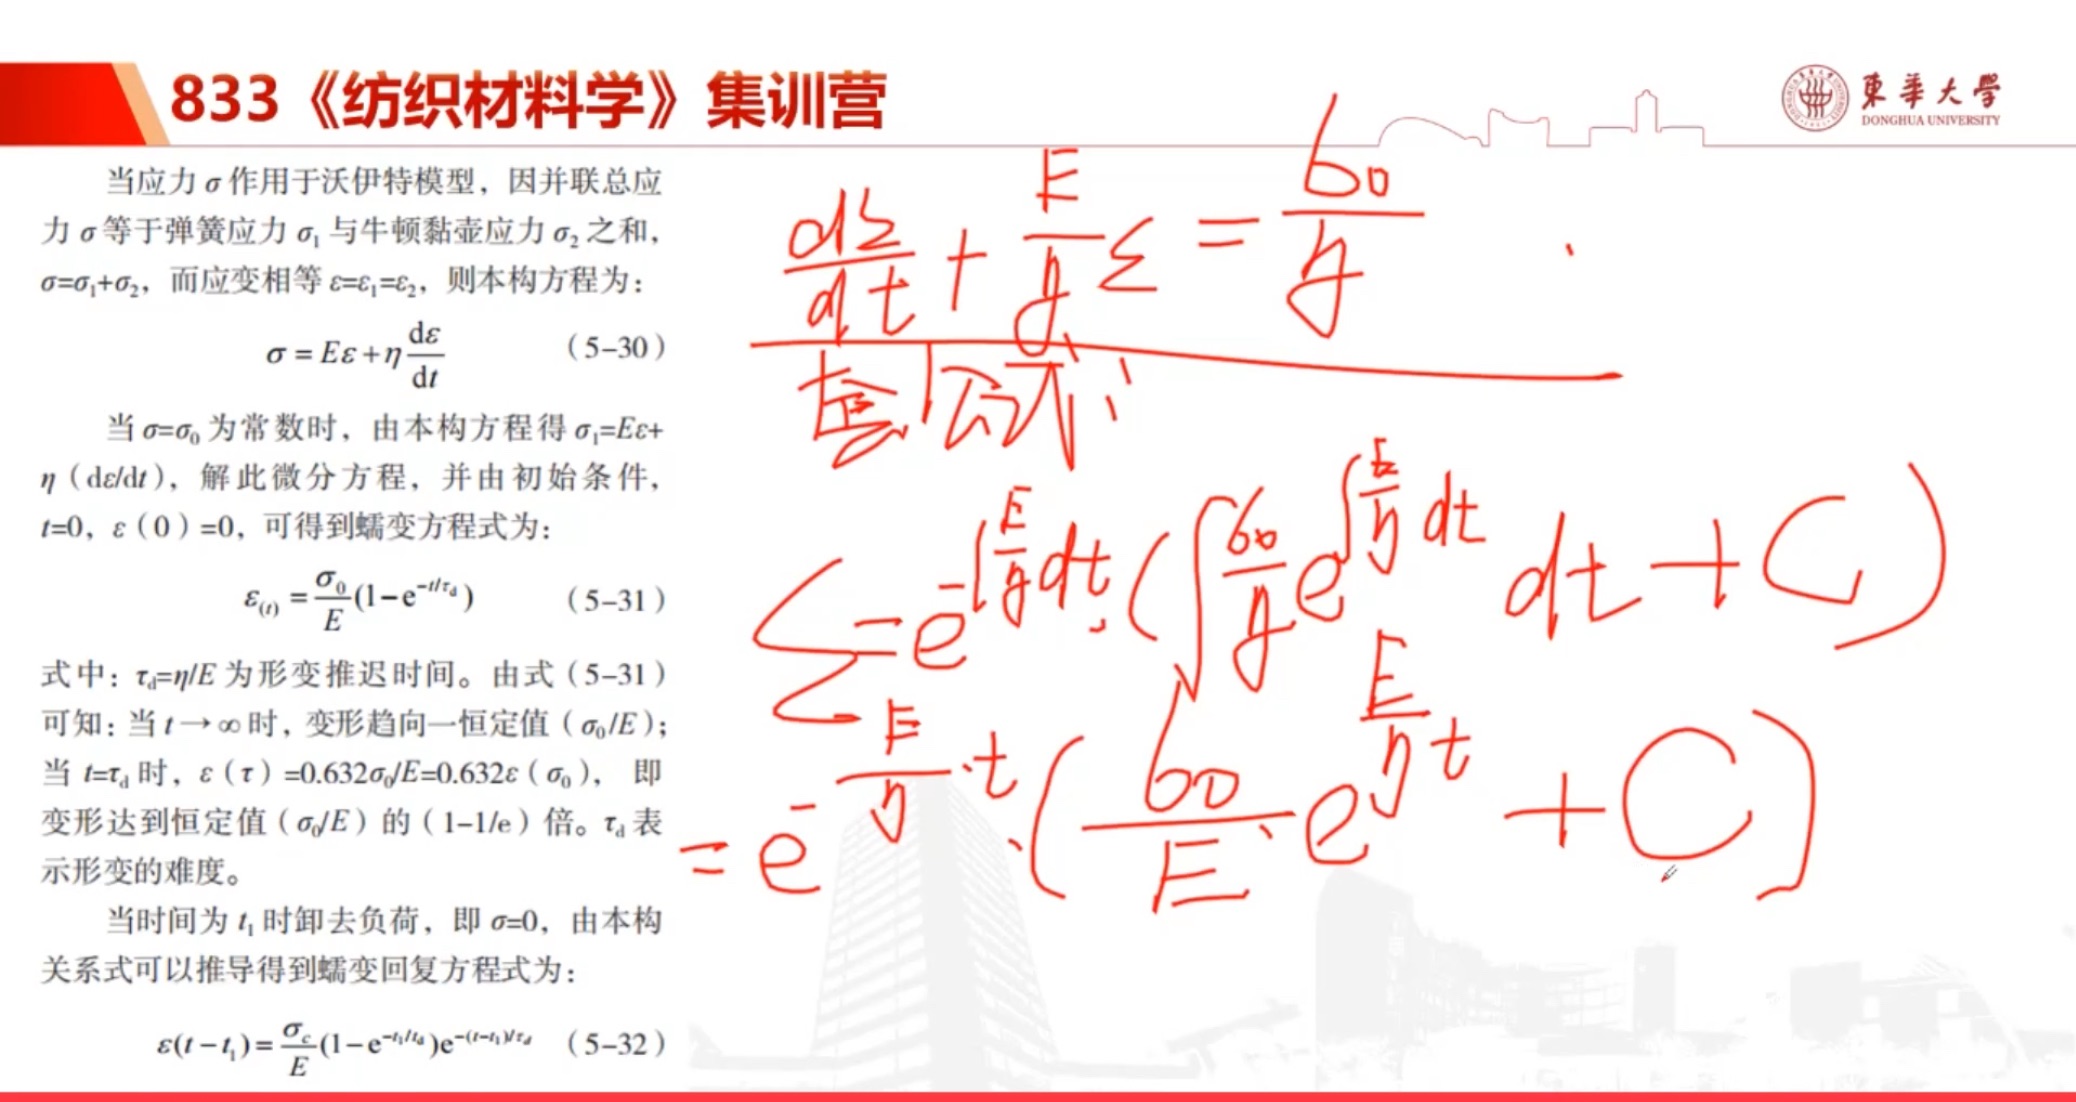 833《纺织材料学》集训营
東華大學
DONGHUA UNIVERSITY
当应力 σ 作用于沃伊特模型，因并联总应
力 σ 等于弹簧应力 σ₁ 与牛顿黏壶应力 σ₂ 之和，
σ=σ₁+σ₂，而应变相等 ε=ε₁=ε₂，则本构方程为：
σ = Eε + η dε/dt （5-30）
当 σ=σ₀ 为常数时，由本构方程得 σ₁=Eε+
η（dε/dt），解此微分方程，并由初始条件，
t=0，ε（0）=0，可得到蠕变方程式为：
ε₍t₎ = σ₀/E (1−e^(−t/τ_d)) （5-31）
式中：τ_d=η/E 为形变推迟时间。由式（5-31）
可知：当 t→∞ 时，变形趋向一恒定值（σ₀/E）；
当 t=τ_d 时，ε（τ）=0.632σ₀/E=0.632ε（σ₀），即
变形达到恒定值（σ₀/E）的（1-1/e）倍。τ_d 表
示形变的难度。
当时间为 t₁ 时卸去负荷，即 σ=0，由本构
关系式可以推导得到蠕变回复方程式为：
ε(t − t₁) = σ_c/E (1−e^(−t₁/t_d))e^(−(t−t₁)/τ_d) （5-32）
dε/dt + E/η ε = σ₀/η
套公式
ε = e^(−∫E/η dt) · (∫ σ₀/η e^(∫E/η dt) dt + C)
= e^(−E/η · t) · (σ₀/E · e^(E/η t) + C)